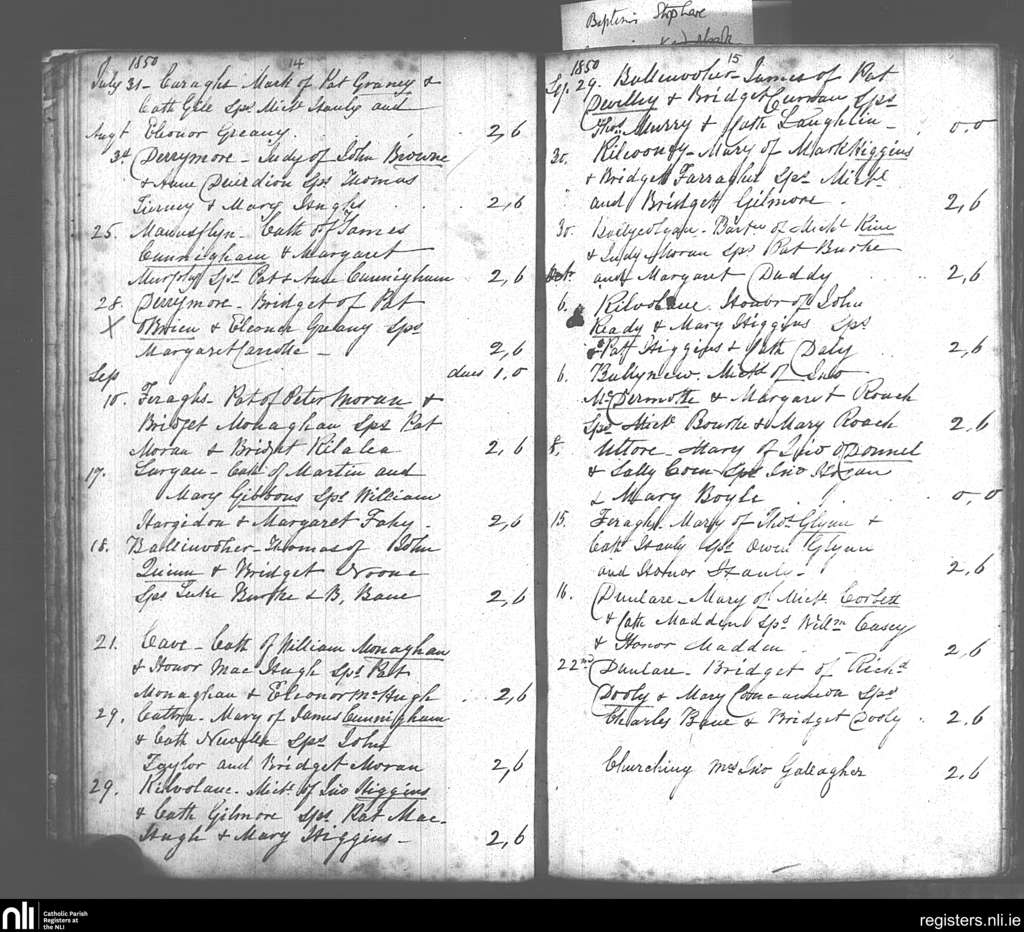 Baptisms Stop here
1850 14
July 31 - Curaghs Mark of Pat Graney &
Cath Gill Sps Michl Hanly and
Augt Eleonor Greany. 2,6
3d Derrymore - Judy of John Browne
& Anne Sps Thomas
Tierney & Mary Hughs 2,6
25. Mannusflyn - Cath of James
Cunningham & Margaret
Murphy Sps Pat & Anne Cunningham 2,6
28. Derrymore - Bridget of Pat
X OBrien & Eleonor Greany Sps
Margaret 2,6
Sep dues 1,0
10. Feraghs - Pat of Peter Moran &
Bridget Monaghan Sps Pat
Moran & Bridget Kilalea 2,6
17. Lurgan - Cath of Martin and
Mary Gibbons Sps William
Hargidon & Margaret Fahy. 2,6
18. Ballinvoher - Thomas of John
Quinn & Bridget Noone
Sps Luke Burke & B, Bane 2,6
21. Cave - Cath of William Monaghan
& Honor Mac Hugh Sps Pat
Monaghan & Eleonor McHugh 2,6
29. Cathra - Mary of James Cunningham
& Cath Sps John
Taylor and Bridget Moran 2,6
29. Kilvolane. Michl of Jno Higgins
& Cath Gilmore Sps Pat Mac-
Hugh & Mary Higgins - 2,6
1850 15
Sep. 29. Ballinvoher - James of Pat
Devilly & Bridget Curran Sps
Thos. Murry & Cath Laughlin - 0.0
30. Kilvoony - Mary of Mark Higgins
& Bridget Farragher Sps Michl
and Bridget Gilmore. 2,6
30. Michl Kine
& Judy Moran Sps Pat Burke
Octr. and Margaret Daddy 2,6
6. Kilvolane. Honor of John
Keady & Mary Higgins Sps
Patt Higgins & Cath Daly 2,6
6. Ballynew. Michl of Jno
McDermotte & Margaret Roach
Sps Michl Bourke & Mary Roach 2,6
8. Uttore - Mary of Jno ODonnel
& Sally Coen Sps Jno Hogan
& Mary Boyle 0,0
15. Feraghs. Mary of Thos Glynn &
Cath Hanly Sps Owen Glynn
and Honor Hanly - 2,6
16. Dunlare - Mary of Michl Corbett
& Cath Madden Sps Willm Casey
& Honor Madden 2,6
22nd Dunlare - Bridget of Richd
Dooly & Mary Concannon Sps
Charles Bane & Bridget Dooly 2.6
Churching Mrs Jno Gallagher 2.6
nli Catholic Parish
Registers at
the NLI
registers.nli.ie